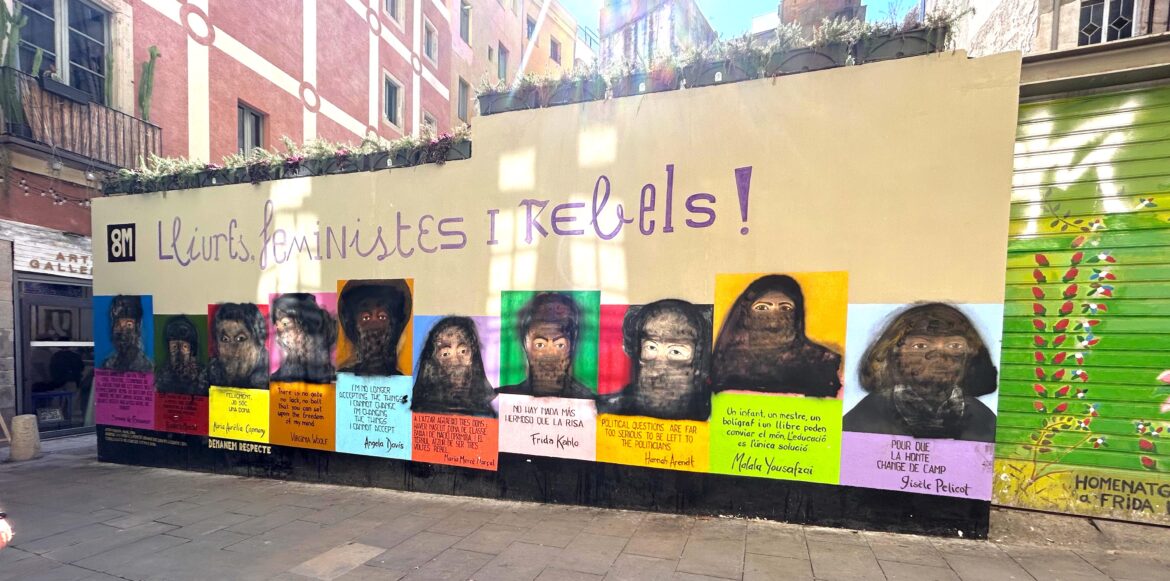 8M
Lliures, feministes i rebels!
ART
GALLE
Simone de Beauvoir
Maria Aurèlia Capmany
FELICMENT,
JO SÓC
UNA DONA
DEMANEM RESPECTE
There is no gate
no lock, no bolt
that you can set
upon the freedom
of my mind
VIRGINIA WOOLF
I'M NO LONGER
ACCEPTING THE THINGS
I CANNOT CHANGE
I'M CHANGING
THE THINGS
I CANNOT ACCEPT
Angela Davis
A L'ATZAR AGRAEIXO TRES DONS,
HAVER NASCUT DONA, DE CLASSE
BAIXA DE NACIÓ OPRIMIDA I EL
TÈRBOL ATZUR DE SER TRES
VOLTES REBEL.
Maria Mercè Marçal
NO HAY NADA MÁS
HERMOSO QUE LA RISA
Frida Kahlo
POLITICAL QUESTIONS ARE FAR
TOO SERIOUS TO BE LEFT TO
THE POLITICIANS
Hannah Arendt
Un infant, un mestre, un
bolígraf i un llibre poden
canviar el món. L'educació
és l'única solució
Malala Yousafzai
POUR QUE
LA HONTE
CHANGE DE CAMP
Gisèle Pelicot
HOMENATG
a FRIDA